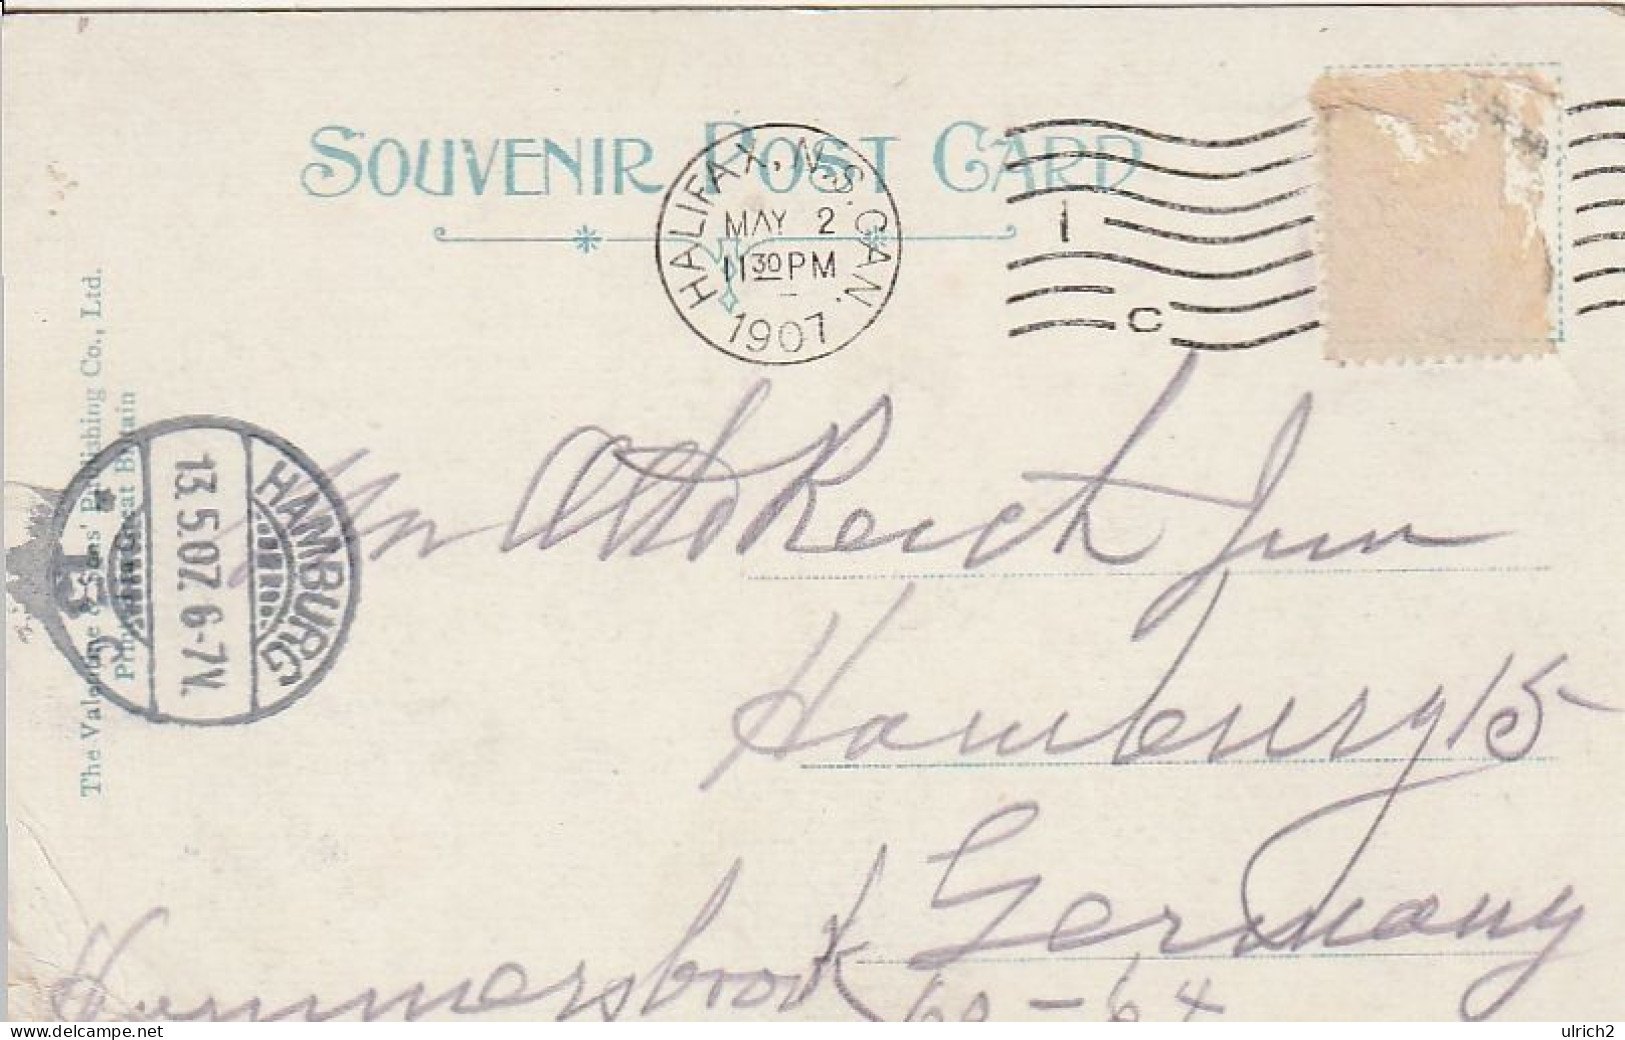 SOUVENIR POST CARD
HALIFAX, N.S. CAN.
MAY 2
11 30 PM
1907
1 C
The Valentine & Sons' Publishing Co., Ltd.
Printed in Great Britain
HAMBURG
13.5.07. 6-7V.
Otto Reich Jun
Hamburg 15
Germany
Hammersbrook 60-64
www.delcampe.net
ulrich2